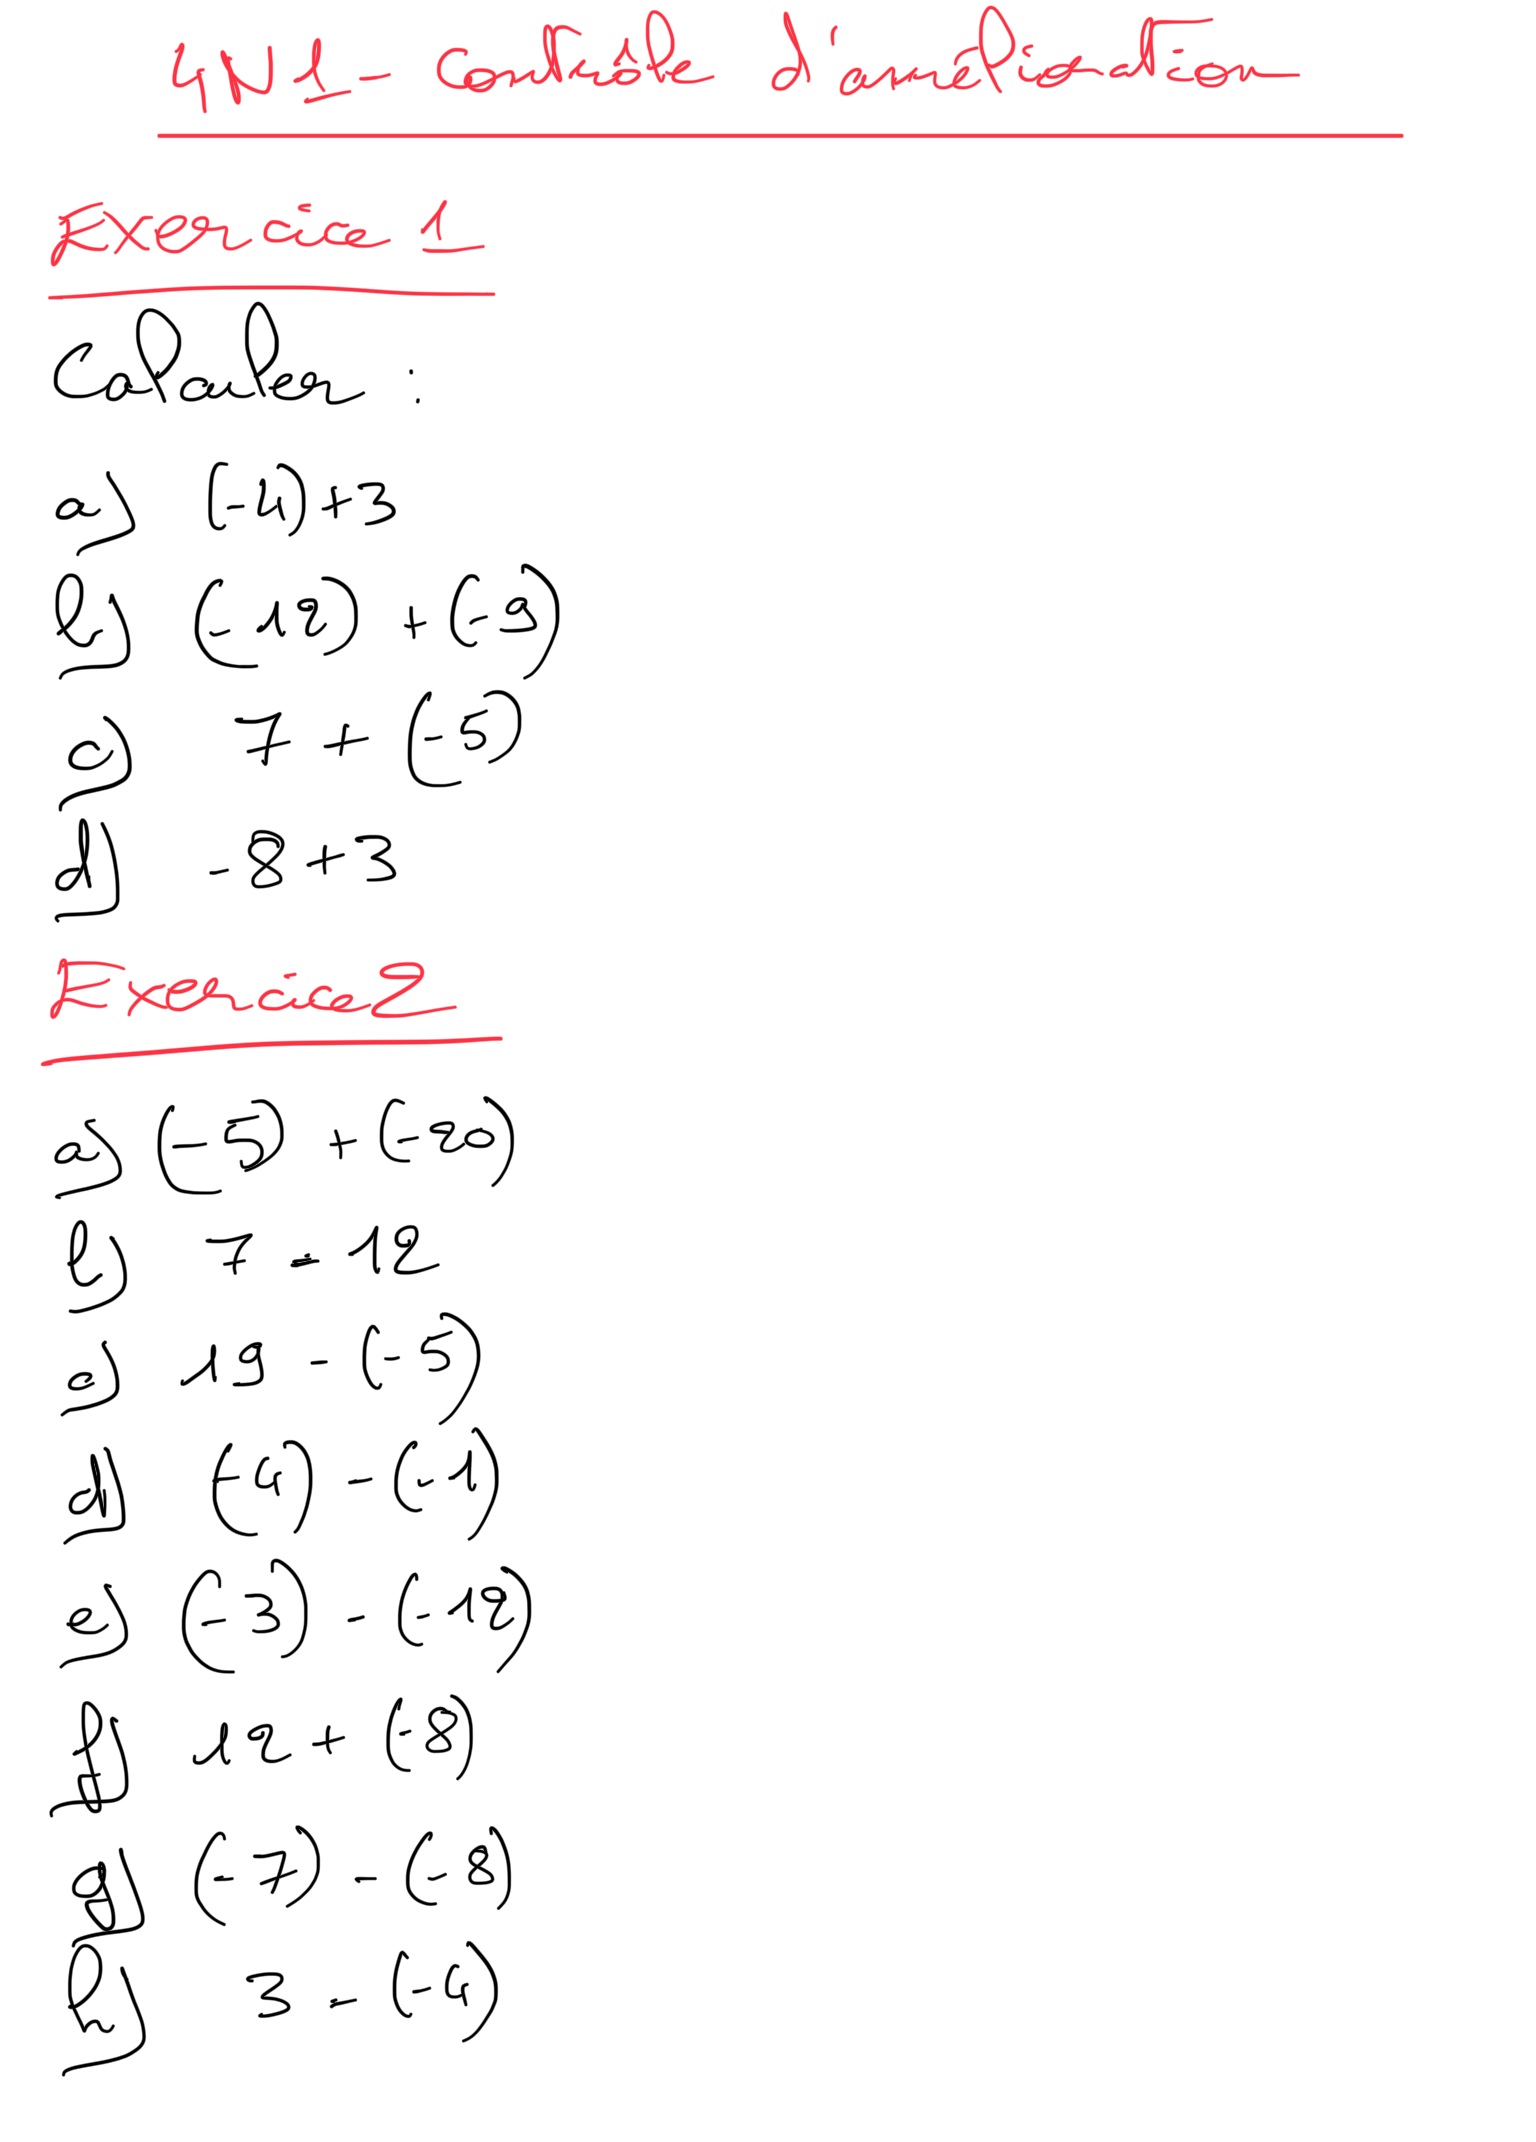 4N1 - Contrôle d'amélioration
Exercice 1
Calculer :
a) (-4)+3
b) (-12) + (-9)
c) 7 + (-5)
d) -8+3
Exercice 2
a) (-5) + (-20)
b) 7 - 12
c) 19 - (-5)
d) (-4) - (-1)
e) (-3) - (-12)
f) 12 + (-8)
g) (-7) - (-8)
h) 3 - (-4)